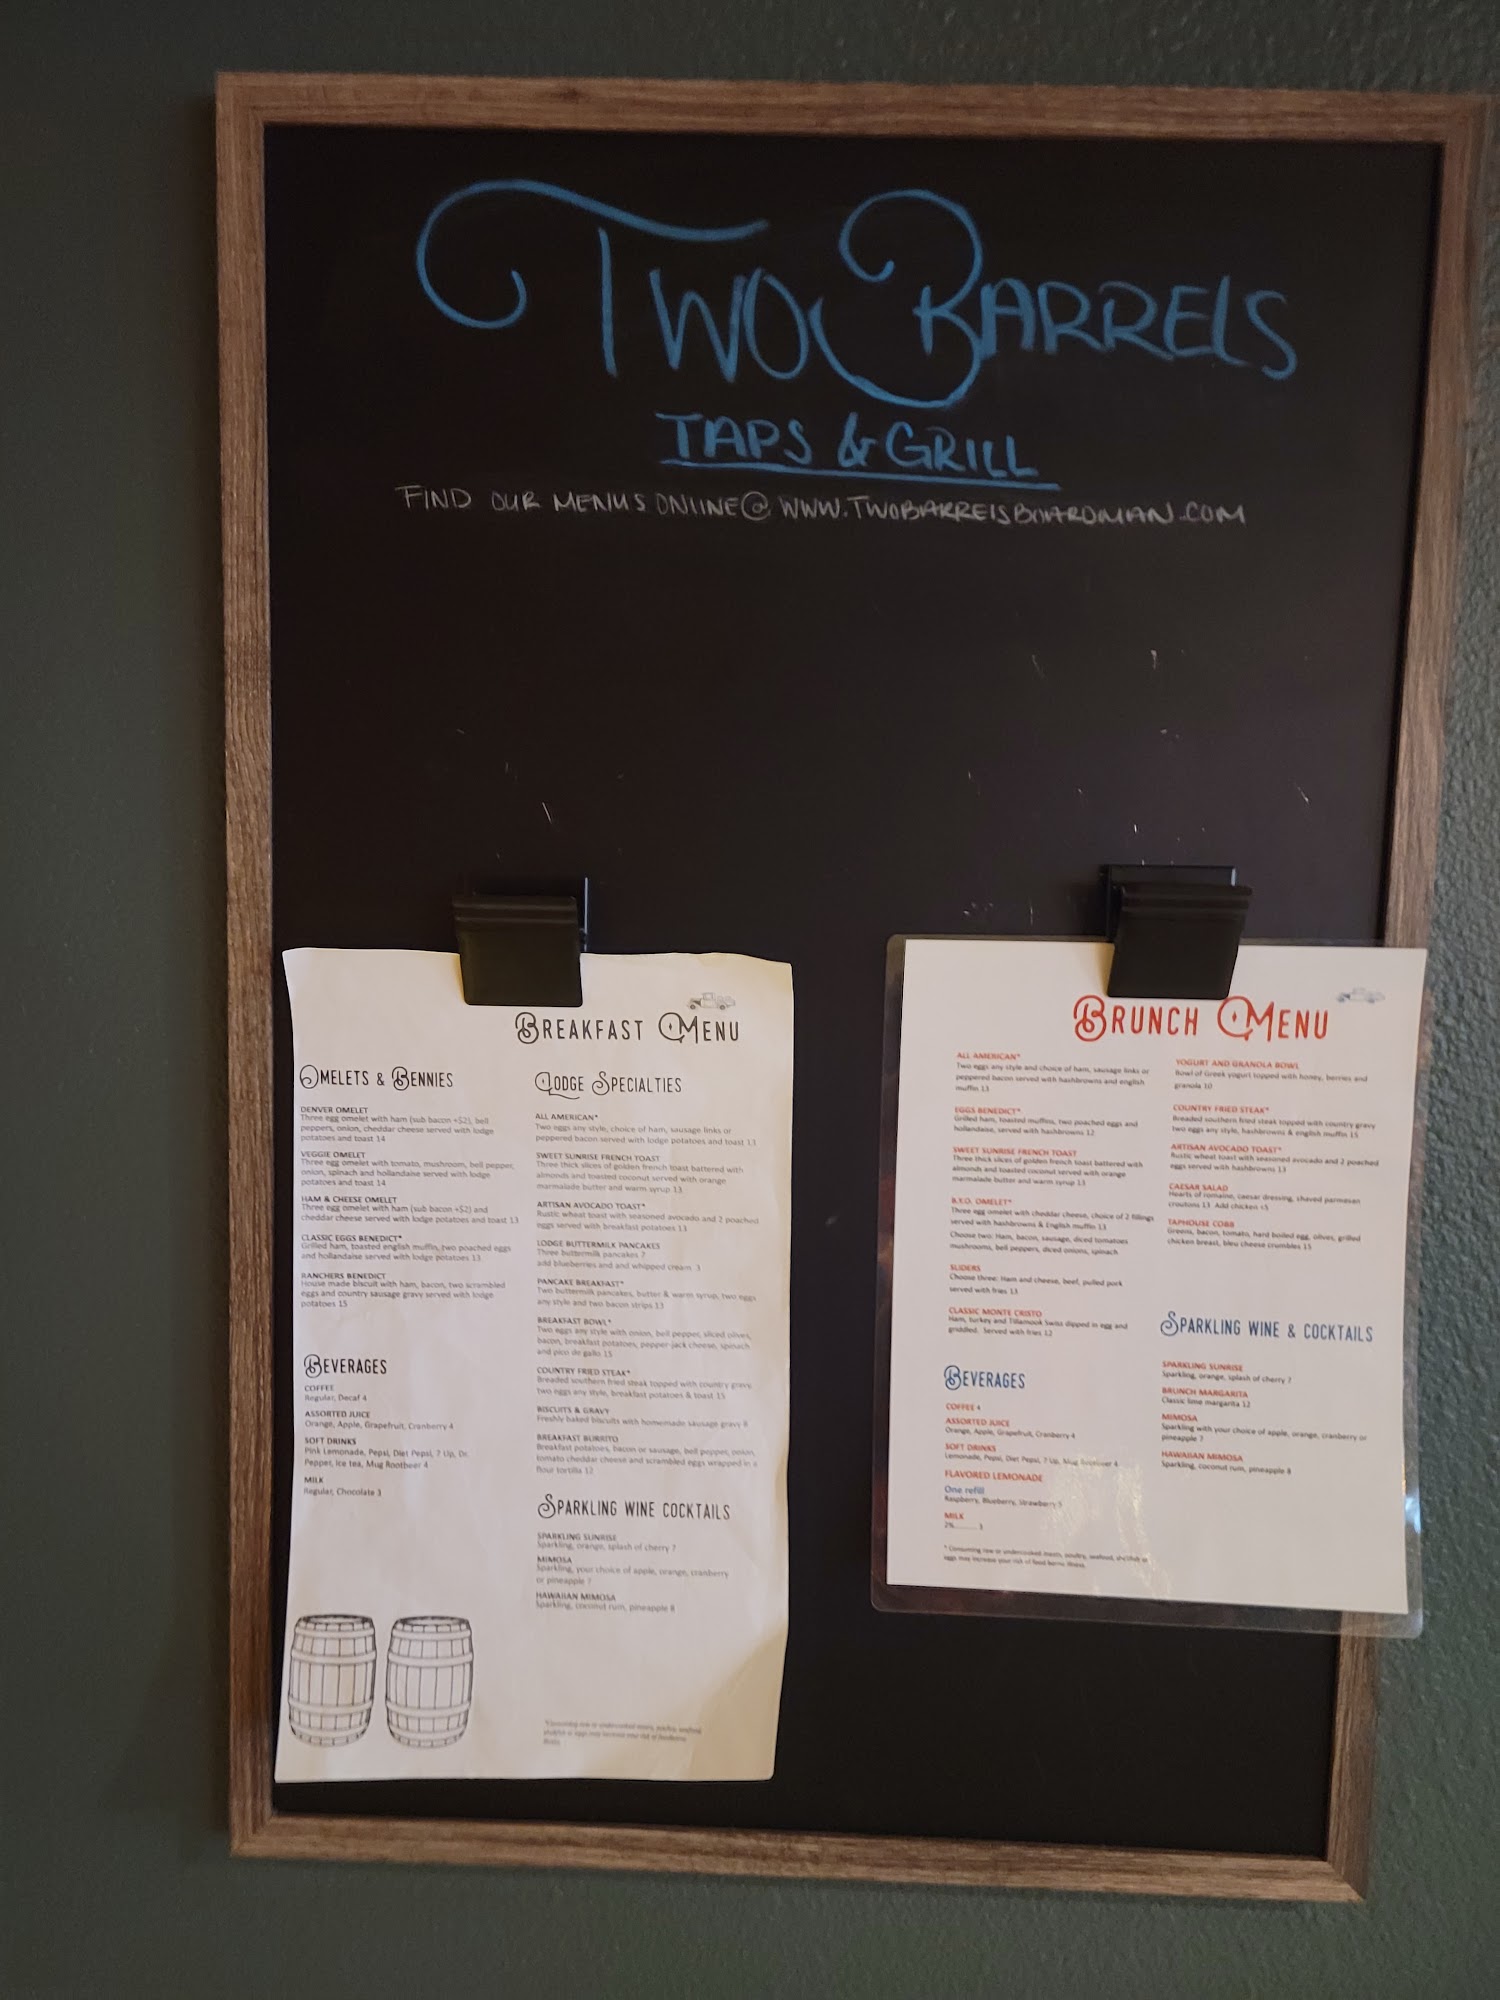 TWO BARRELS
TAPS & GRILL
FIND OUR MENUS ONLINE@ WWW.TWOBARRELSBOARDMAN.COM
BREAKFAST MENU
OMELETS & BENNIES
DENVER OMELET
Three egg omelet with ham (sub bacon +$2), bell
peppers, onion, cheddar cheese served with lodge
potatoes and toast 14
VEGGIE OMELET
Three egg omelet with tomato, mushroom, bell pepper,
onion, spinach and hollandaise served with lodge
potatoes and toast 14
HAM & CHEESE OMELET
Three egg omelet with ham (sub bacon +$2) and
cheddar cheese served with lodge potatoes and toast 13
CLASSIC EGGS BENEDICT*
Grilled ham, toasted english muffin, two poached eggs
and hollandaise served with lodge potatoes 13
RANCHERS BENEDICT
House made biscuit with ham, bacon, two scrambled
eggs and country sausage gravy served with lodge
potatoes 15
BEVERAGES
COFFEE
Regular, Decaf 4
ASSORTED JUICE
Orange, Apple, Grapefruit, Cranberry 4
SOFT DRINKS
Pink Lemonade, Pepsi, Diet Pepsi, 7 Up, Dr.
Pepper, Ice tea, Mug Rootbeer 4
MILK
Regular, Chocolate 3
LODGE SPECIALTIES
ALL AMERICAN*
Two eggs any style, choice of ham, sausage links or
peppered bacon served with lodge potatoes and toast 13
SWEET SUNRISE FRENCH TOAST
Three thick slices of golden french toast battered with
almonds and toasted coconut served with orange
marmalade butter and warm syrup 13
ARTISAN AVOCADO TOAST*
Rustic wheat toast with seasoned avocado and 2 poached
eggs served with breakfast potatoes 13
LODGE BUTTERMILK PANCAKES
Three buttermilk pancakes 7
add blueberries and and whipped cream 3
PANCAKE BREAKFAST*
Two buttermilk pancakes, butter & warm syrup, two eggs
any style and two bacon strips 13
BREAKFAST BOWL*
Two eggs any style with onion, bell pepper, sliced olives,
bacon, breakfast potatoes, pepper-jack cheese, spinach
and pico de gallo 15
COUNTRY FRIED STEAK*
Breaded southern fried steak topped with country gravy
two eggs any style, breakfast potatoes & toast 15
BISCUITS & GRAVY
Freshly baked biscuits with homemade sausage gravy 8
BREAKFAST BURRITO
Breakfast potatoes, bacon or sausage, bell pepper, onion,
tomato cheddar cheese and scrambled eggs wrapped in a
flour tortilla 12
SPARKLING WINE COCKTAILS
SPARKLING SUNRISE
Sparkling, orange, splash of cherry 7
MIMOSA
Sparkling, your choice of apple, orange, cranberry
or pineapple 7
HAWAIIAN MIMOSA
Sparkling, coconut rum, pineapple 8
BRUNCH MENU
ALL AMERICAN*
Two eggs any style and choice of ham, sausage links or
peppered bacon served with hashbrowns and english
muffin 13
EGGS BENEDICT*
Grilled ham, toasted muffins, two poached eggs and
hollandaise, served with hashbrowns 12
SWEET SUNRISE FRENCH TOAST
Three thick slices of golden french toast battered with
almonds and toasted coconut served with orange
marmalade butter and warm syrup 13
B.Y.O. OMELET*
Three egg omelet with cheddar cheese, choice of 2 fillings
served with hashbrowns & English muffin 13
Choose two: Ham, bacon, sausage, diced tomatoes
mushrooms, bell peppers, diced onions, spinach
SLIDERS
Choose three: Ham and cheese, beef, pulled pork
served with fries 13
CLASSIC MONTE CRISTO
Ham, turkey and Tillamook Swiss dipped in egg and
griddled. Served with fries 12
BEVERAGES
COFFEE 4
ASSORTED JUICE
Orange, Apple, Grapefruit, Cranberry 4
SOFT DRINKS
Lemonade, Pepsi, Diet Pepsi, 7 Up, Mug Rootbeer 4
FLAVORED LEMONADE
One refill
Raspberry, Blueberry, Strawberry 5
MILK
2%.......... 3
* Consuming raw or undercooked meats, poultry, seafood, shellfish or
eggs may increase your risk of food borne illness
YOGURT AND GRANOLA BOWL
Bowl of Greek yogurt topped with honey, berries and
granola 10
COUNTRY FRIED STEAK*
Breaded southern fried steak topped with country gravy
two eggs any style, hashbrowns & english muffin 15
ARTISAN AVOCADO TOAST*
Rustic wheat toast with seasoned avocado and 2 poached
eggs served with hashbrowns 13
CAESAR SALAD
Hearts of romaine, caesar dressing, shaved parmesan
croutons 13 Add chicken +5
TAPHOUSE COBB
Greens, bacon, tomato, hard boiled egg, olives, grilled
chicken breast, bleu cheese crumbles 15
SPARKLING WINE & COCKTAILS
SPARKLING SUNRISE
Sparkling, orange, splash of cherry 7
BRUNCH MARGARITA
Classic lime margarita 12
MIMOSA
Sparkling with your choice of apple, orange, cranberry or
pineapple 7
HAWAIIAN MIMOSA
Sparkling, coconut rum, pineapple 8